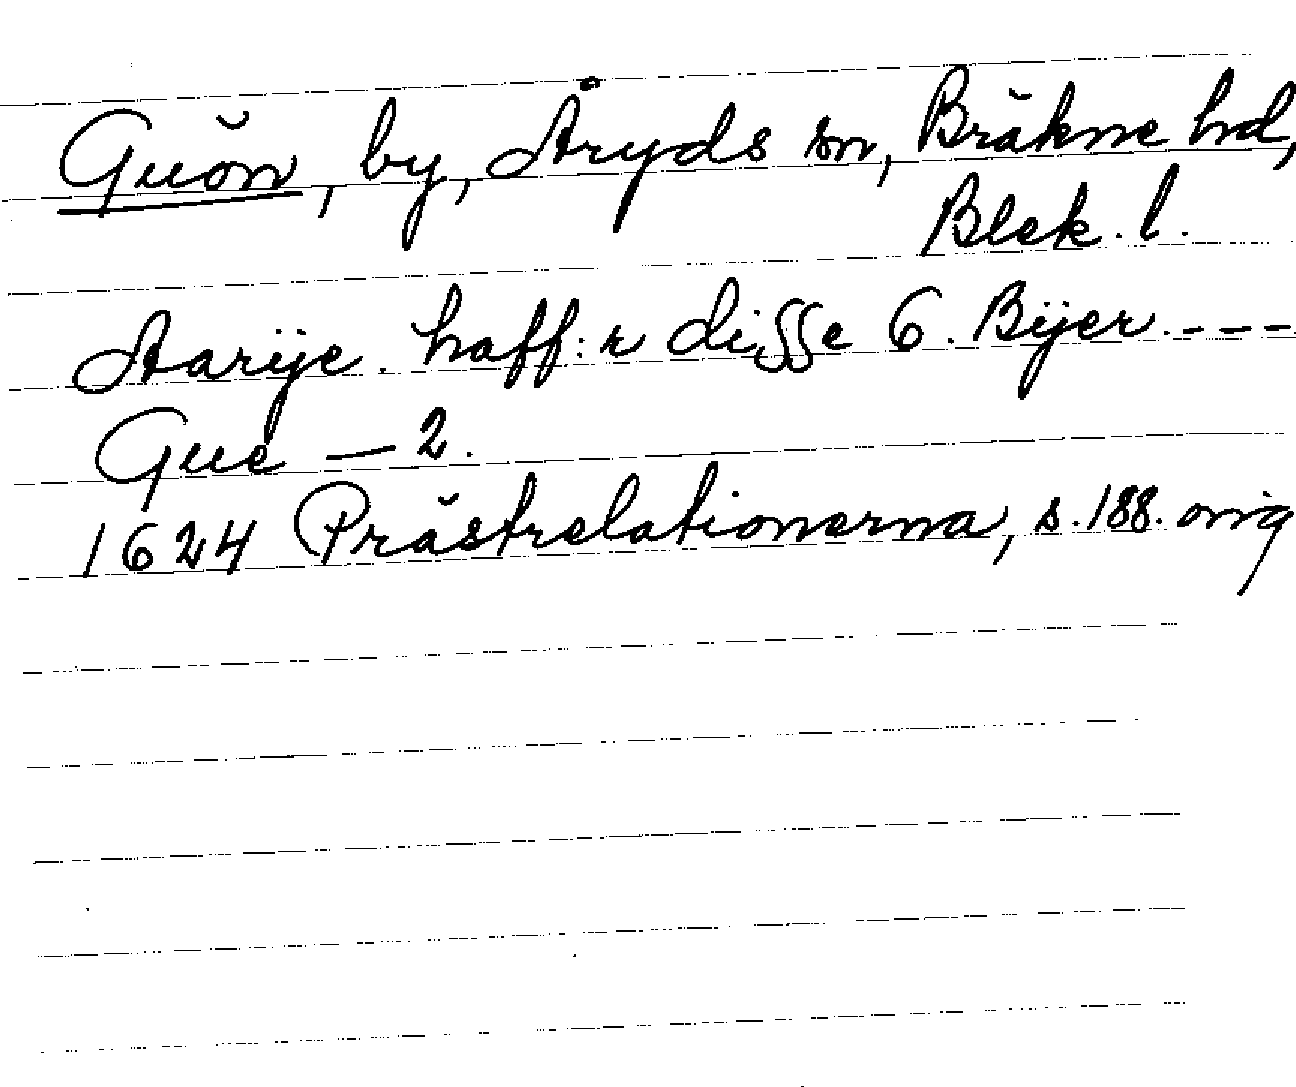 Guön, by, Åryds sn, Bräkne hd,
Blek. l.
Aarije. haff:r disse 6. Bijer. ---
Gue — 2.
1624 Prästrelationerna, s. 188. orig